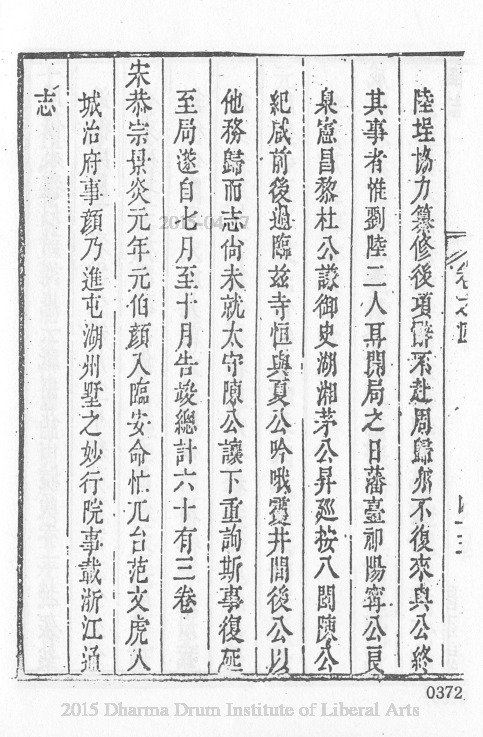 陸堦協力纂修後項辭不赴周歸亦不復來與公終
其事者惟劉陸二人耳開局之日藩臺祁陽寗公良
臬憲昌黎杜公謙御史湖湘茅公昇廵按八閩陳公
紀咸前後過臨兹寺恒與夏公吟哦霞井間後公以
他務歸而志尙未就太守陳公讓下重詢斯事復延
至局遂自七月至十月告竣總計六十有三卷
宋恭宗景炎元年元伯顏入臨安命忙兀台范文虎入
城治府事顏乃進屯湖州墅之妙行院事載浙江通
志
2015-04-17
0372
2015 Dharma Drum Institute of Liberal Arts